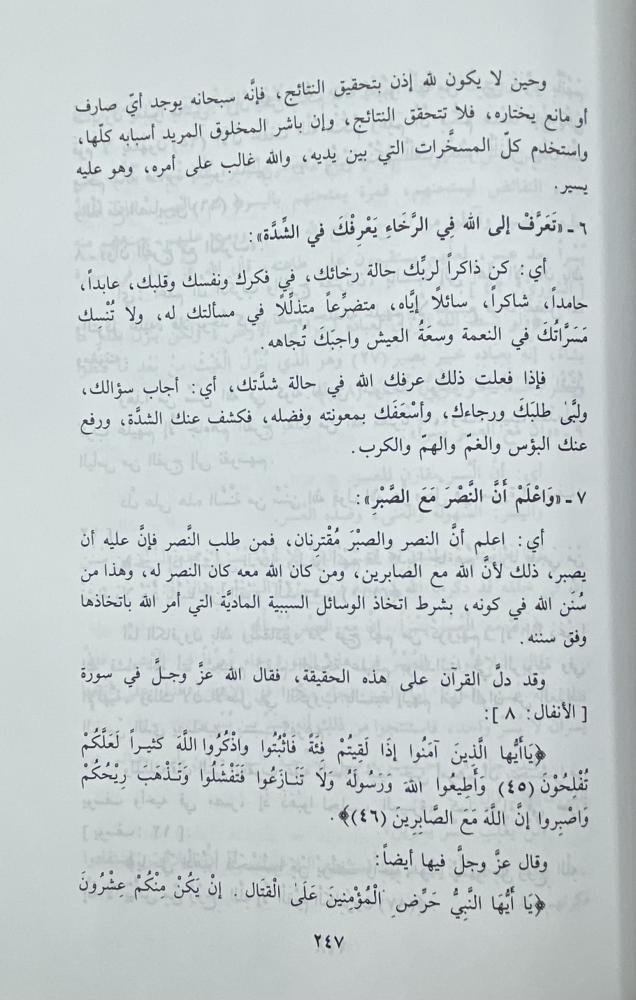 وحين لا يكون لله إذن بتحقيق النتائج، فإنَّه سبحانه يوجد أيّ صارف
أو مانع يختاره، فلا تتحقق النتائج، وإن باشر المخلوق المريد أسبابه كلّها،
واستخدم كلّ المسخَّرات التي بين يديه، والله غالب على أمره، وهو عليه
يسير.
٦ - «تَعَرَّفْ إلى الله فِي الرَّخَاءِ يَعْرِفْكَ في الشِّدَّة»:
أي: كن ذاكراً لربِّك حالة رخائك، في فكرك ونفسك وقلبك، عابداً،
حامداً، شاكراً، سائلاً إيَّاه، متضرِّعاً متذلِّلاً في مسألتك له، ولا تُنْسِك
مَسَرَّاتُكَ في النعمة وسعَةُ العيش واجبَكَ تُجاهه.
فإذا فعلت ذلك عرفك الله في حالة شدَّتك، أي: أجاب سؤالك،
ولبَّىٰ طلبَكَ ورجاءك، وأسْعَفَك بمعونته وفضله، فكشف عنك الشدَّة، ورفع
عنك البؤس والغمّ والهمّ والكرب.
٧ - «وَاعْلَمْ أَنَّ النَّصْرَ مَعَ الصَّبْرِ»:
أي: اعلم أنَّ النصر والصبْرَ مُقْترِنان، فمن طلب النَّصر فإنَّ عليه أن
يصبر، ذلك لأنَّ الله مع الصابرين، ومن كان الله معه كان النصر له، وهذا من
سُنَن الله في كونه، بشرط اتخاذ الوسائل السببية الماديَّة التي أمر الله باتخاذها
وفق سننه.
وقد دلَّ القرآن على هذه الحقيقة، فقال الله عزَّ وجلَّ في سورة
[الأنفال: ٨]:
﴿يَاأَيُّهَا الَّذِينَ آمَنُوا إِذَا لَقِيتُمْ فِئَةً فَاثْبُتُوا وَاذْكُرُوا اللَّهَ كَثِيراً لَعَلَّكُمْ
تُفْلِحُوْنَ (٤٥) وَأَطِيعُوا اللهَ وَرَسُولَهُ وَلَا تَنَازَعُوا فَتَفْشَلُوا وَتَذْهَبَ رِيْحُكُمْ
وَاصْبِروا إنَّ اللَّهَ مَعَ الصَّابِرِينَ (٤٦)﴾.
وقال عزَّ وجلَّ فيها أيضاً:
﴿يَا أَيُّهَا النَّبِيُّ حَرِّضِ الْمُؤْمِنينَ عَلَىٰ الْقِتَال. إنْ يَكُنْ مِنْكُمْ عِشْرُونَ
٢٤٧